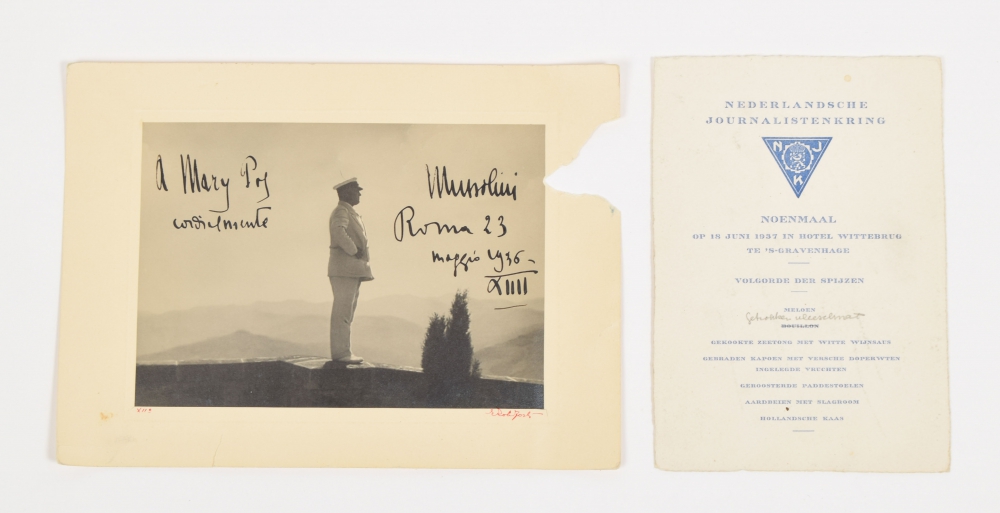 A Mary Pos
cordialmente
Mussolini
Roma 23
maggio 1936-
XIIII
NEDERLANDSCHE
JOURNALISTENKRING
N J
K
NOENMAAL
OP 18 JUNI 1937 IN HOTEL WITTEBRUG
TE 'S-GRAVENHAGE
VOLGORDE DER SPIJZEN
MELOEN
Getrokken vleeschnat
BOUILLON
GEROOKTE ZEETONG MET WITTE WIJNSAUS
GEBRADEN KAPOEN MET VERSCHE DOPERWTEN
INGELEGDE VRUCHTEN
GEROOSTERDE PADDESTOELEN
AARDBEIEN MET SLAGROOM
HOLLANDSCHE KAAS